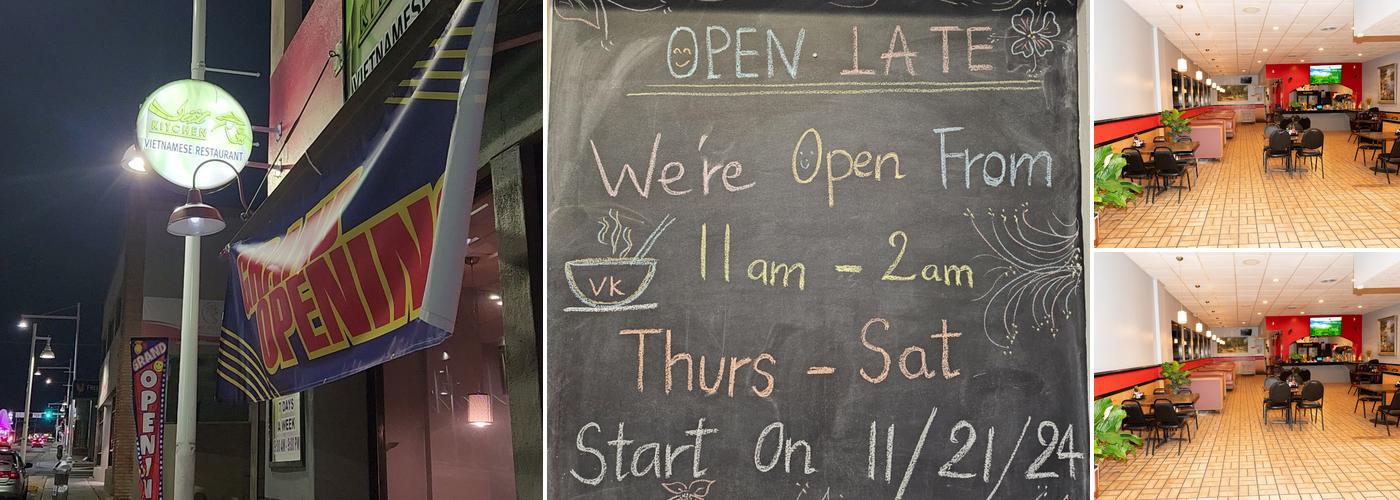 KITCHEN
VIETNAMESE RESTAURANT
VIETNAMES
GRAND
OPENIN
GRAND
OPENIN
7 DAYS
A WEEK
OPEN LATE
We're Open From
11am - 2am
VK
Thurs - Sat
Start On 11/21/24